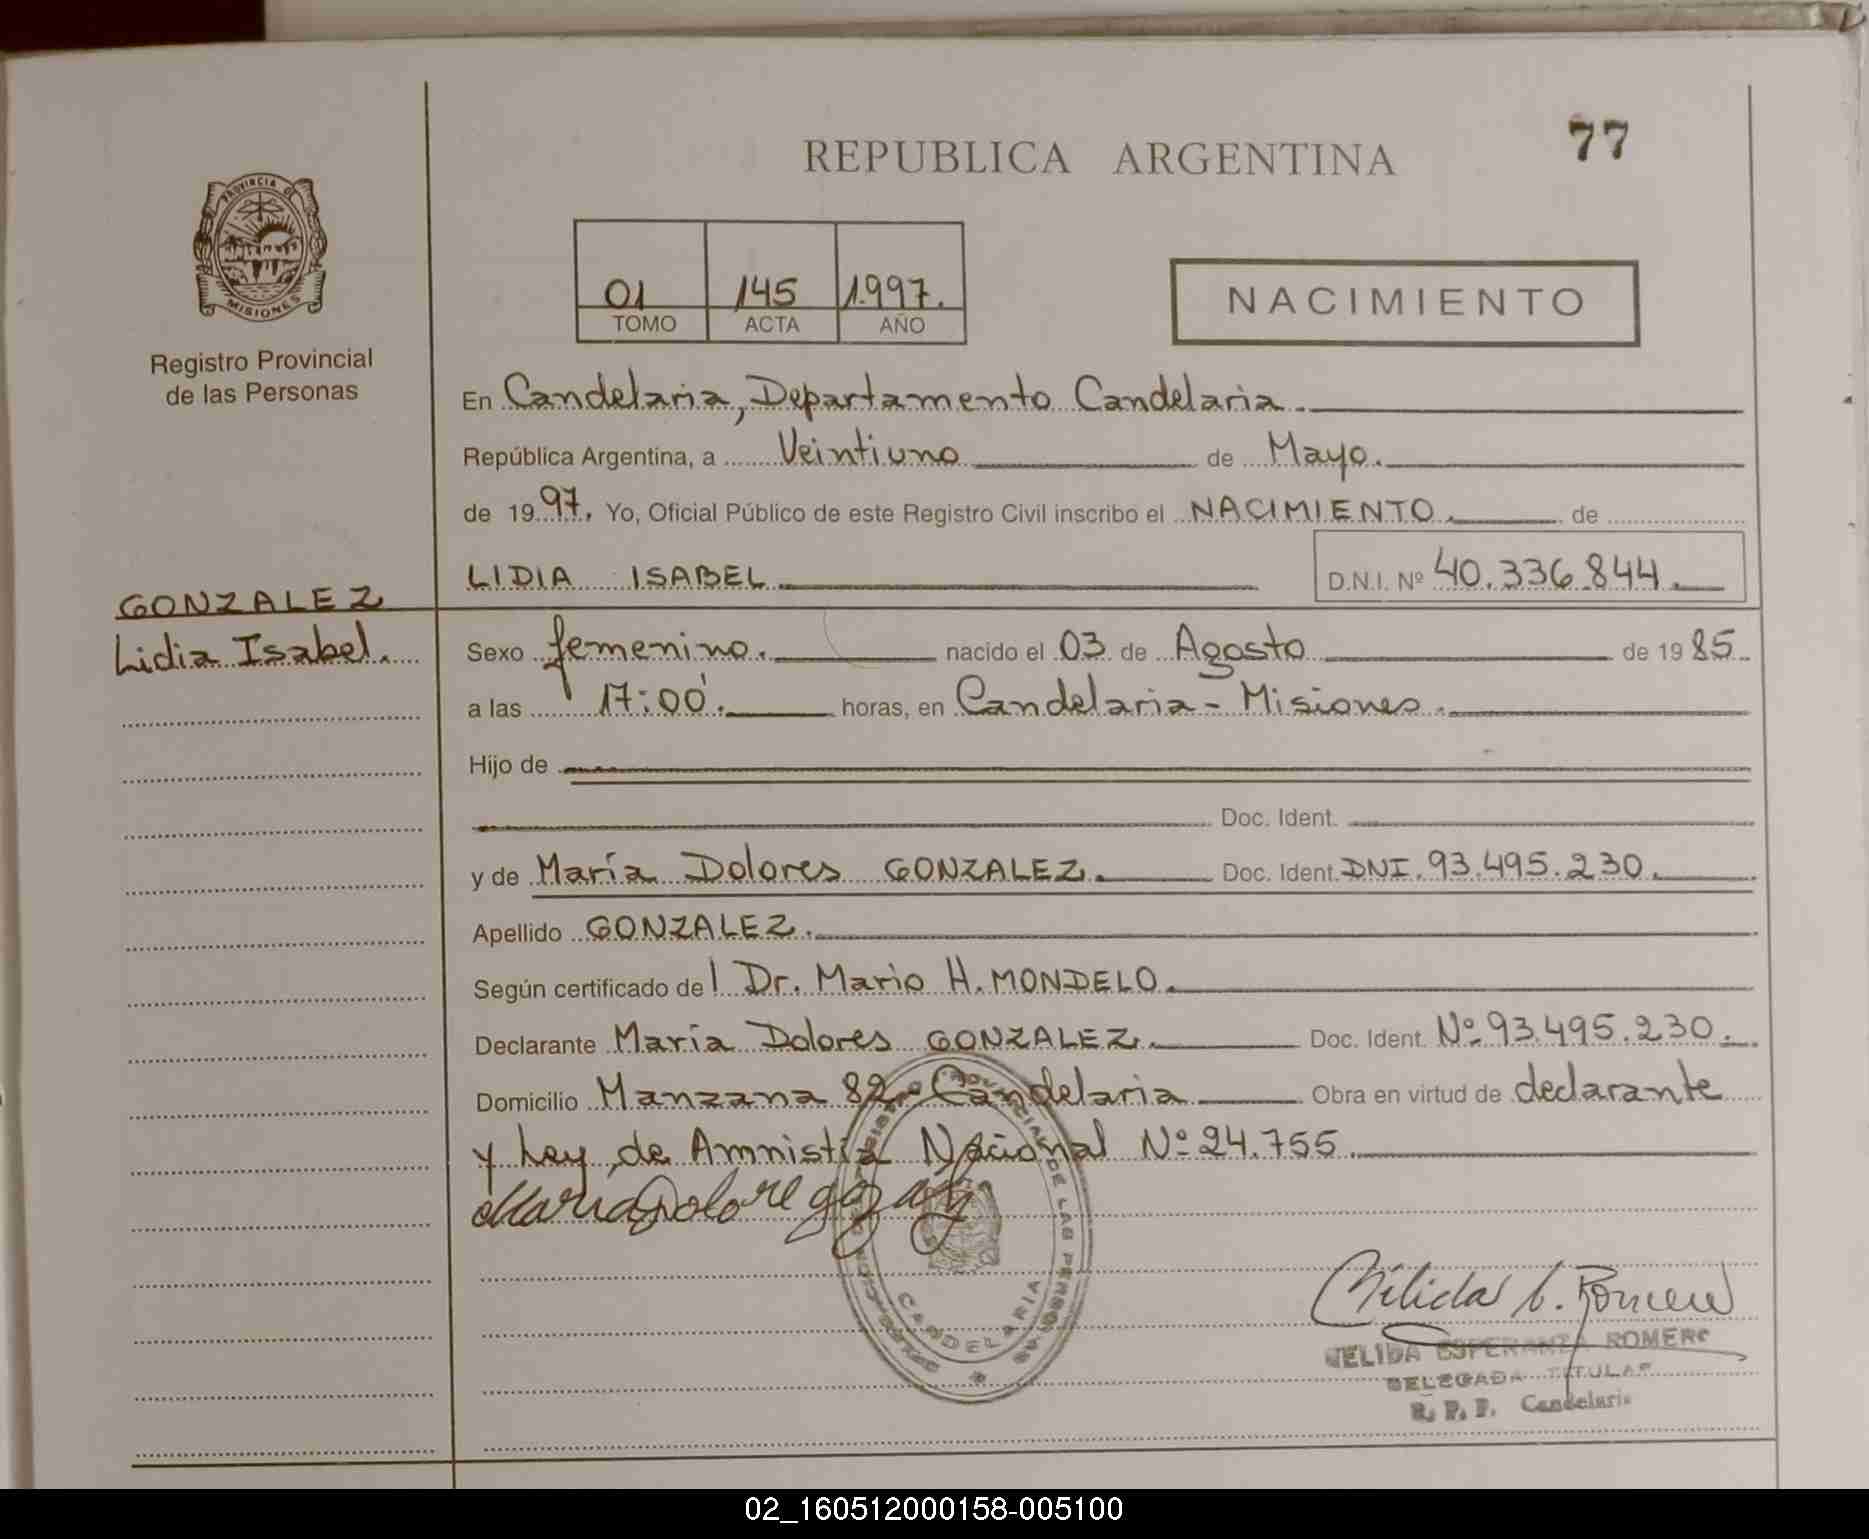 REPUBLICA ARGENTINA
77
PROVINCIA DE
MISIONES
Registro Provincial
de las Personas
01 145 1.997.
TOMO ACTA AÑO
NACIMIENTO
En Candelaria, Departamento Candelaria.
República Argentina, a Veintiuno de Mayo.
de 1997. Yo, Oficial Público de este Registro Civil inscribo el NACIMIENTO. de
LIDIA ISABEL
D.N.I. Nº 40.336.844.
GONZALEZ
Lidia Isabel.
Sexo femenino. nacido el 03 de Agosto de 1985
a las 17:00'. horas, en Candelaria - Misiones.
Hijo de
Doc. Ident.
y de María Dolores GONZALEZ. Doc. Ident. DNI. 93.495.230.
Apellido GONZALEZ.
Según certificado de l Dr. Mario H. MONDELO.
Declarante María Dolores GONZALEZ. Doc. Ident. Nº 93.495.230.
Domicilio Manzana 82 - Candelaria Obra en virtud de declarante
y Ley de Amnistía Nacional Nº 24.755.
DE LAS PERSONAS
CANDELARIA
NELIDA ESPERANZA ROMERO
DELEGADA TITULAR
R. P. P. Candelaria
02_160512000158-005100